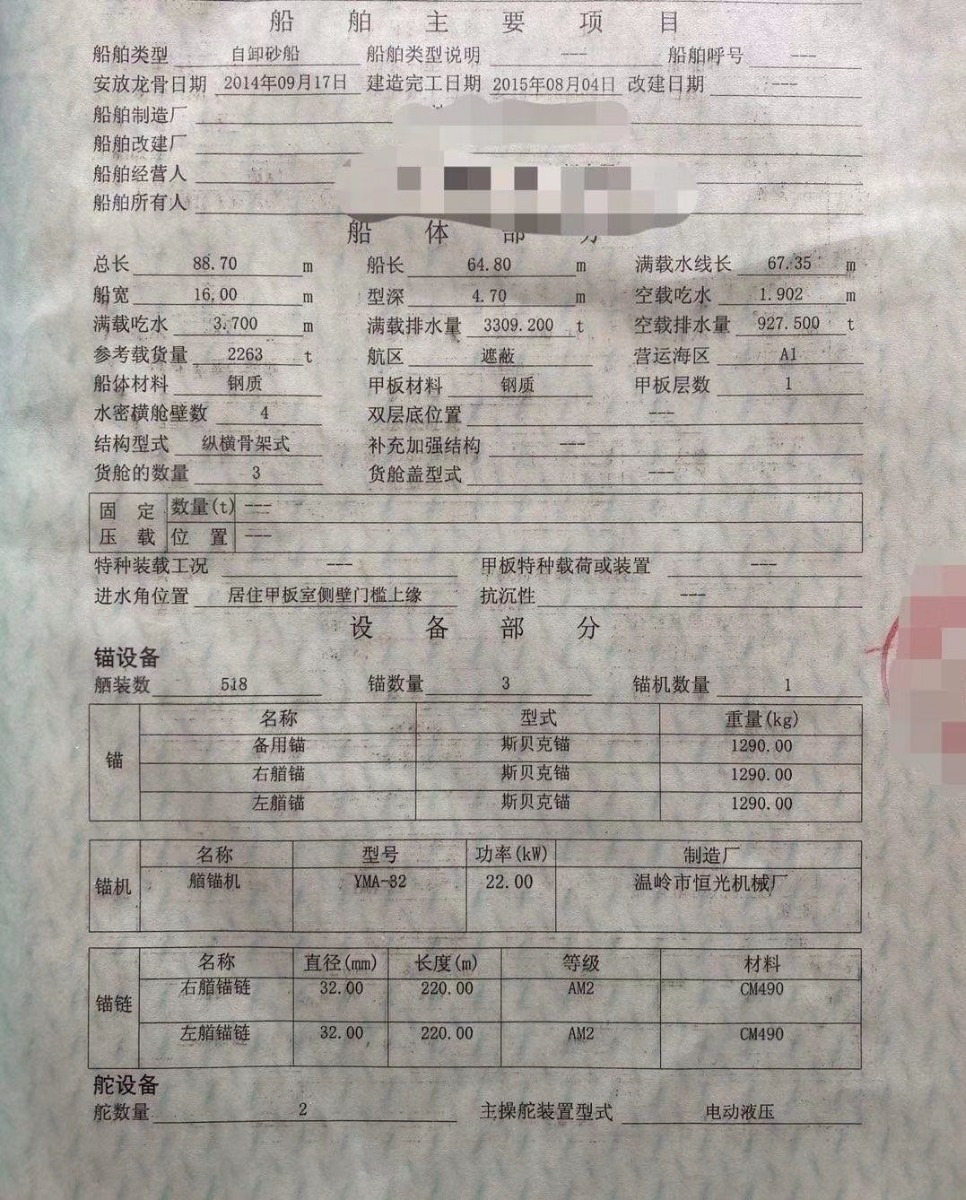 船舶主要项目
船舶类型 自卸砂船 船舶类型说明 --- 船舶呼号 ---
安放龙骨日期 2014年09月17日 建造完工日期 2015年08月04日 改建日期 ---
船舶制造厂
船舶改建厂
船舶经营人
船舶所有人
船体部分
总长 88.70 m 船长 64.80 m 满载水线长 67.35 m
船宽 16.00 m 型深 4.70 m 空载吃水 1.902 m
满载吃水 3.700 m 满载排水量 3309.200 t 空载排水量 927.500 t
参考载货量 2263 t 航区 遮蔽 营运海区 A1
船体材料 钢质 甲板材料 钢质 甲板层数 1
水密横舱壁数 4 双层底位置 ---
结构型式 纵横骨架式 补充加强结构 ---
货舱的数量 3 货舱盖型式 ---
固定 数量(t) ---
压载 位置 ---
特种装载工况 --- 甲板特种载荷或装置 ---
进水角位置 居住甲板室侧壁门槛上缘 抗沉性 ---
设备部分
锚设备
舾装数 518 锚数量 3 锚机数量 1
名称 型式 重量(kg)
备用锚 斯贝克锚 1290.00
锚
右艏锚 斯贝克锚 1290.00
左艏锚 斯贝克锚 1290.00
名称 型号 功率(kW) 制造厂
锚机 艏锚机 YMA-32 22.00 温岭市恒光机械厂
名称 直径(mm) 长度(m) 等级 材料
右艏锚链 32.00 220.00 AM2 CM490
锚链
左艏锚链 32.00 220.00 AM2 CM490
舵设备
舵数量 2 主操舵装置型式 电动液压